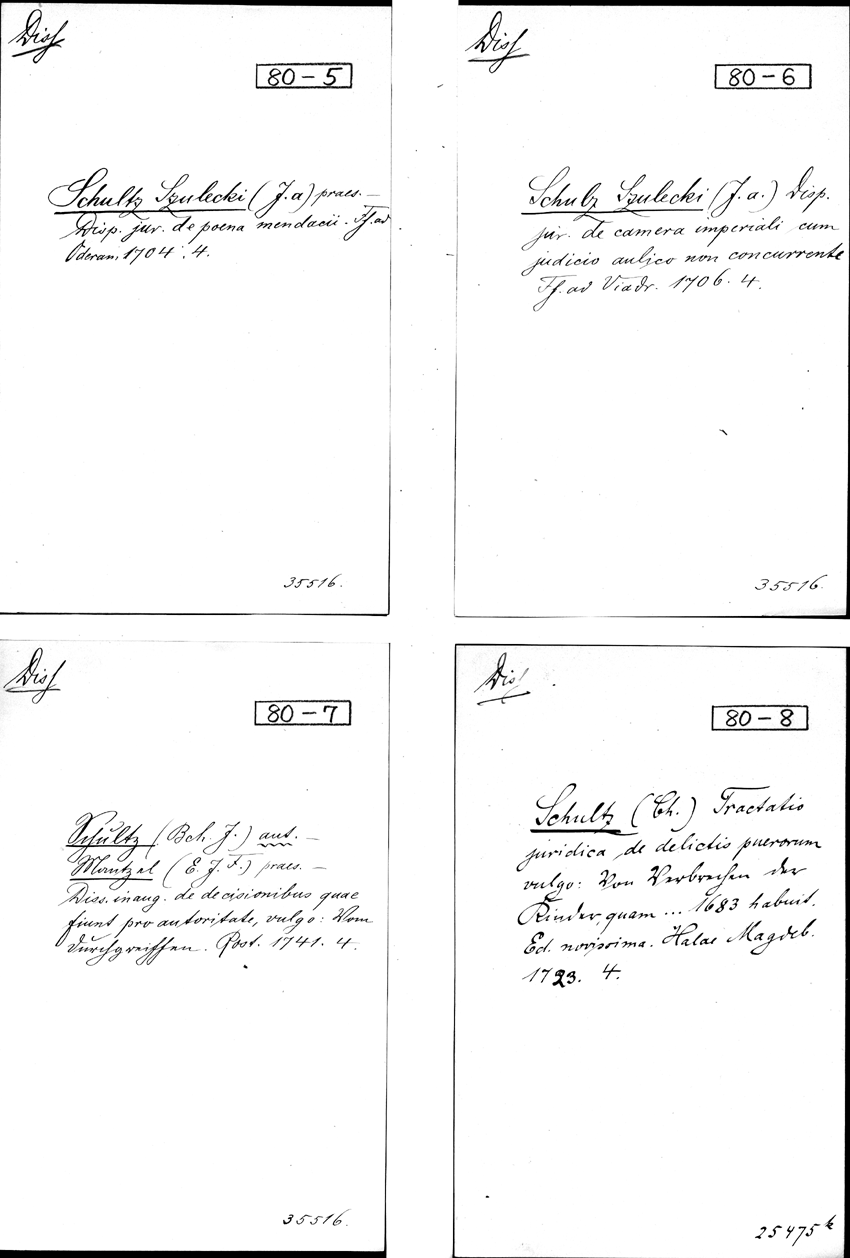 Diss
80-5
Schultz Szulecki (J. a) praes. —
Disp. jur. de poena mendacii. Ff. ad
Oderam, 1704. 4.
35516.
Diss
80-6
Schulz Szulecki (J. a.) Disp.
jur. de camera imperiali cum
judicio aulico non concurrente
Ff. ad Viadr. 1706. 4.
35516.
Diss
80-7
Schultz (Bch. J.) aut. —
Mantzel (E. J. F.) praes. —
Diss. inaug. de decisionibus quae
fiunt pro autoritate, vulgo: Vom
Durchgreiffen. Rost. 1741. 4.
35516.
Diss
80-8
Schultz (Ch.) Tractatio
juridica de delictis puerorum
vulgo: Von Verbrechen der
Kinder, quam ... 1683 habuit.
Ed. novissima. Halae Magdeb.
1723. 4.
25475 k